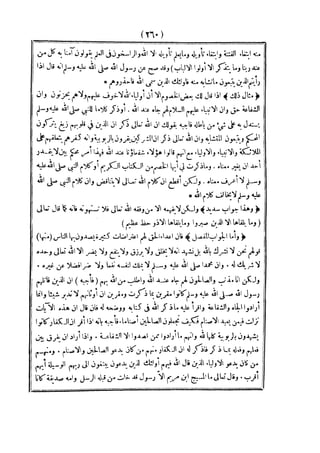 (٢٦٠)
منه ابتغاء الفتنة وابتغاء تأويله وما يعلم تأويله الا الله والراسخون في العلم يقولون آمنا به كل من
عند ربنا وما يذكر الا أولوا الالباب) وقد صح عن رسول الله صلى الله عليه وسلم انه قال اذا
رأيتم الذين يتبعون ما تشابه منه فاولئك الذين سمى الله فاحذروهم *
* مثال ذلك * اذا قال لك بعض الخصوم ألا أن أولياء الله لا خوف عليهم ولا هم يحزنون وان
الشفاعة حق وان الانبياء عليهم السلام لهم جاه عند الله. أو ذكر كلاما للنبي صلى الله عليه وسلم
يستدل به على شيء من باطله فأجبه بقولك ان الله تعالى ذكر ان الذين في قلوبهم زيغ يتركون
المحكم ويتبعون المتشابه وان الله تعالى ذكر ان المشركين يقرون بالربوبية وانه كفرهم بتعلقهم على
الملائكة والانبياء والاولياء مع انهم قالوا هؤلاء شفعاؤنا عند الله فهذا أمر محكم بين لا يقدر
أحد ان يغير معناه. وما ذكرت لي أيها الخصم من الكتاب الكريم أو كلام النبي صلى الله عليه
وسلم لا أعرف معناه. ولكن أقطع ان كلام الله تعالى لا يتناقض وان كلام النبي صلى الله
عليه وسلم لا يخالف كلام الله
* وهذا جواب سديد * ولكن لا يفهمه الا من وفقه الله تعالى فلا تستهونه فانه كما قال تعالى
(وما يلقاها الا الذين صبروا وما يلقاها الا ذو حظ عظيم)
* وأما الجواب المفصل * فان اعداء الحق لهم اعتراضات كثيرة يصدون بها الناس (منها)
قولهم نحن لا نشرك بالله بل نشهد انه لا يخلق ولا يرزق ولا ينفع ولا يضر الا الله تعالى وحده
لا شريك له. وان محمدا صلى الله عليه وسلم لا يملك لنفسه نفعا ولا ضرا فضلا عن غيره.
ولكن انا مذنب والصالحون لهم جاه عند الله واطلب من الله بهم (فأجبه) ان الذين قاتلهم
رسول الله صلى الله عليه وسلم كانوا مقرين بما ذكرت ومقرين ان أوثانهم لا تدبر شيئا وانما
أرادوا الجاه والشفاعة واقرأ عليه ما ذكر الله في كتابه ووضحه له فان قال ان هذه الآيات
نزلت فيمن يعبد الاصنام فكيف تجعلون الصالحين أصناما. فأجبه بانه اذا أقر ان الكفار كانوا
يشهدون بالربوبية كلها لله وانهم ما أرادوا ممن قصدوا الا الشفاعة. واذا أراد ان يفرق بين
فعلهم وفعله بما ذكر فاذكر له ان الكفار منهم من كان يدعو الصالحين والاصنام. ومنهم
من كان يدعو الاولياء الذين قال الله فيهم أولئك الذين يدعون يبتغون الى ربهم الوسيلة أيهم
أقرب. وقال تعالى ما المسيح ابن مريم الا رسول قد خلت من قبله الرسل وامه صديقة كانا